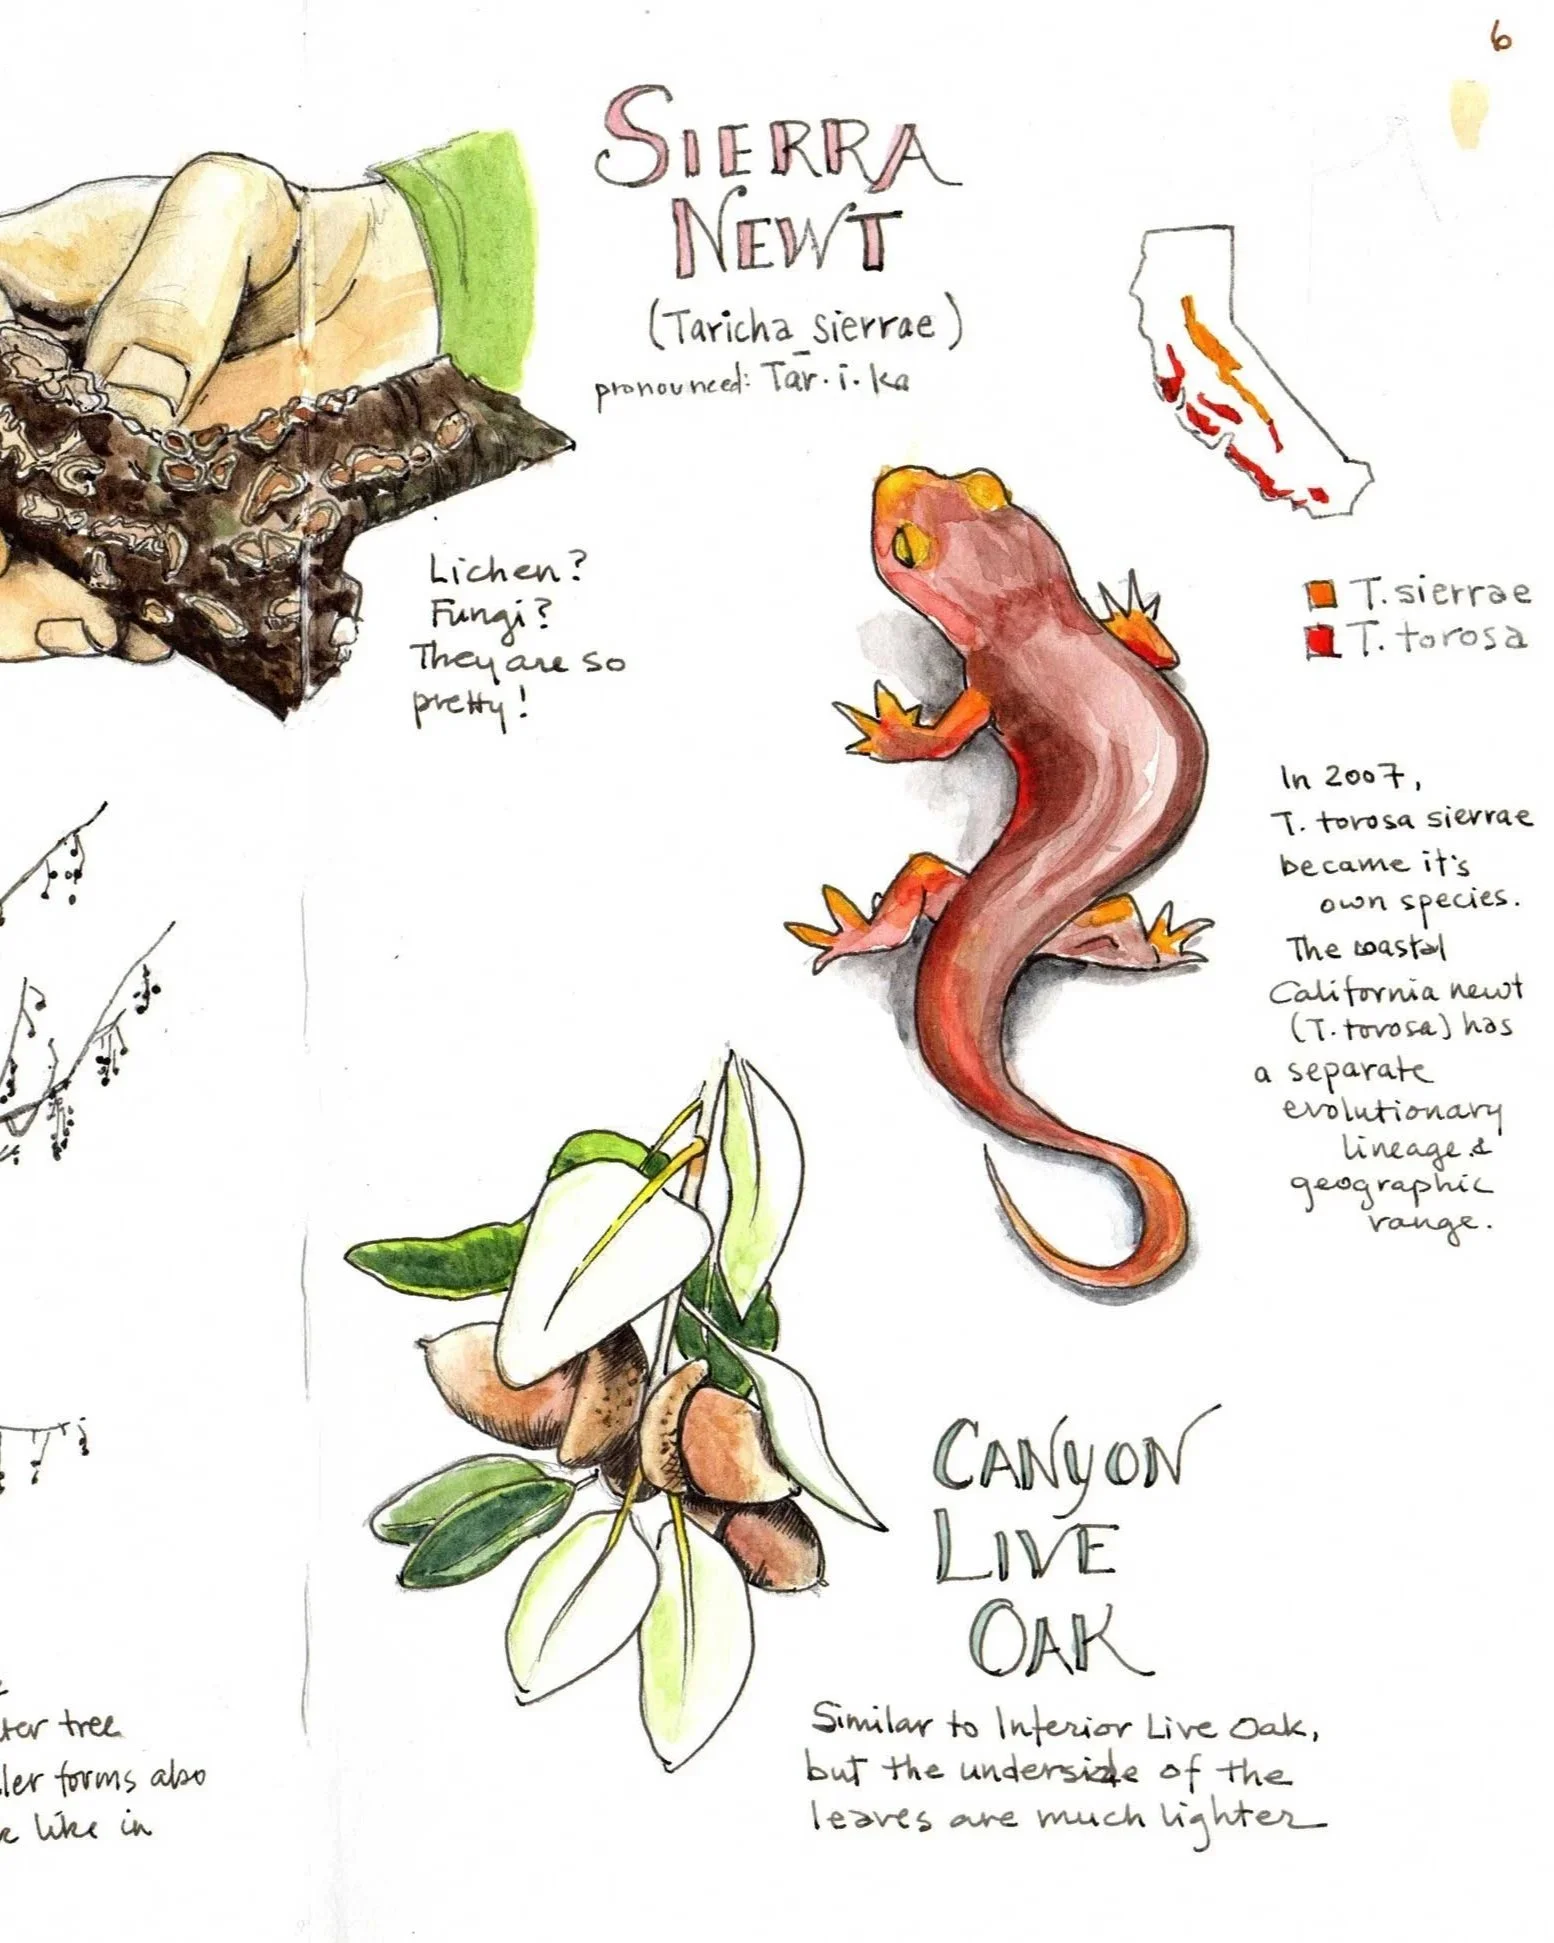 6
SIERRA
NEWT
(Taricha sierrae)
pronounced: Tar·i·ka
T. sierrae
T. torosa
Lichen?
Fungi?
They are so
pretty!
In 2007,
T. torosa sierrae
became it's
own species.
The coastal
California newt
(T. torosa) has
a separate
evolutionary
lineage &
geographic
range.
CANYON
LIVE
OAK
Similar to Interior Live Oak,
but the underside of the
leaves are much lighter
tree
forms also
like in